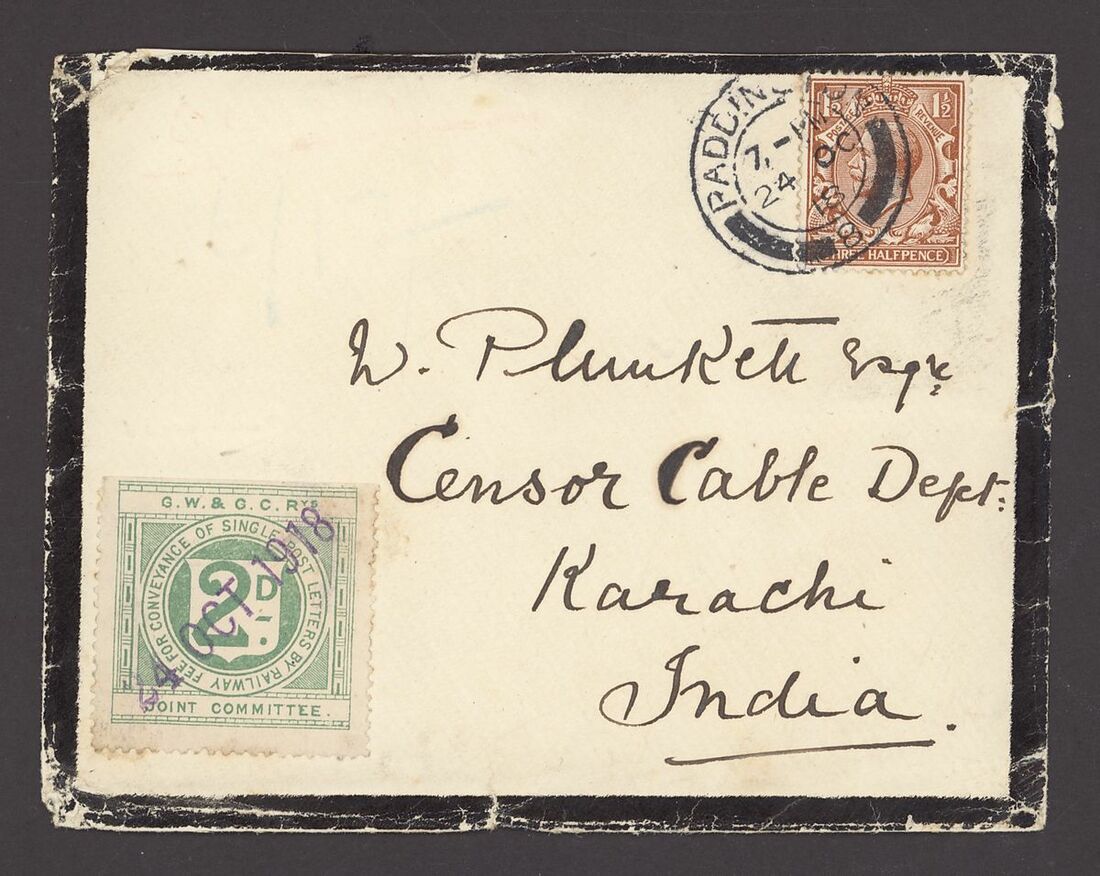 PADDING
7. - PM
24 OC
18
1½ 1½
POSTAGE REVENUE
THREE HALFPENCE
W. Plunkett Esqre
Censor Cable Dept.
Karachi
India.
G.W. & G.C. RYS
FEE FOR CONVEYANCE OF SINGLE POST LETTERS BY RAILWAY
2D.
24 OCT 1918
JOINT COMMITTEE.